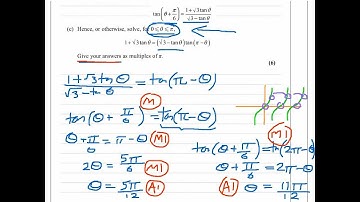 tan(θ + π/6) = (1 + √3 tan θ)/(√3 − tan θ)
(c) Hence, or otherwise, solve, for 0 ⩽ θ ⩽ π,
1 + √3 tan θ = (√3 − tan θ) tan(π − θ)
Give your answers as multiples of π.
(6)
(1 + √3 tan θ)/(√3 − tan θ) = tan(π − θ)
M1
tan(θ + π/6) = tan(π − θ)
θ + π/6 = π − θ M1
2θ = 5π/6
θ = 5π/12 A1
M1
tan(θ + π/6) = tan(2π − θ)
θ + π/6 = 2π − θ
A1 θ = 11π/12